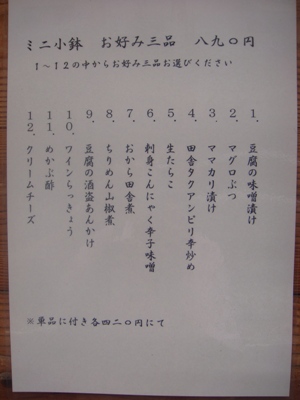 ミニ小鉢　お好み三品　八九〇円
１～１２の中からお好み三品お選びください
１．豆腐の味噌漬け
２．マグロぶつ
３．ママカリ漬け
４．田舎タクアンピリ辛炒め
５．生たらこ
６．刺身こんにゃく辛子味噌
７．おから田舎煮
８．ちりめん山椒煮
９．豆腐の酒盗あんかけ
１０．ワインらっきょう
１１．めかぶ酢
１２．クリームチーズ
※単品に付き各四二〇円にて